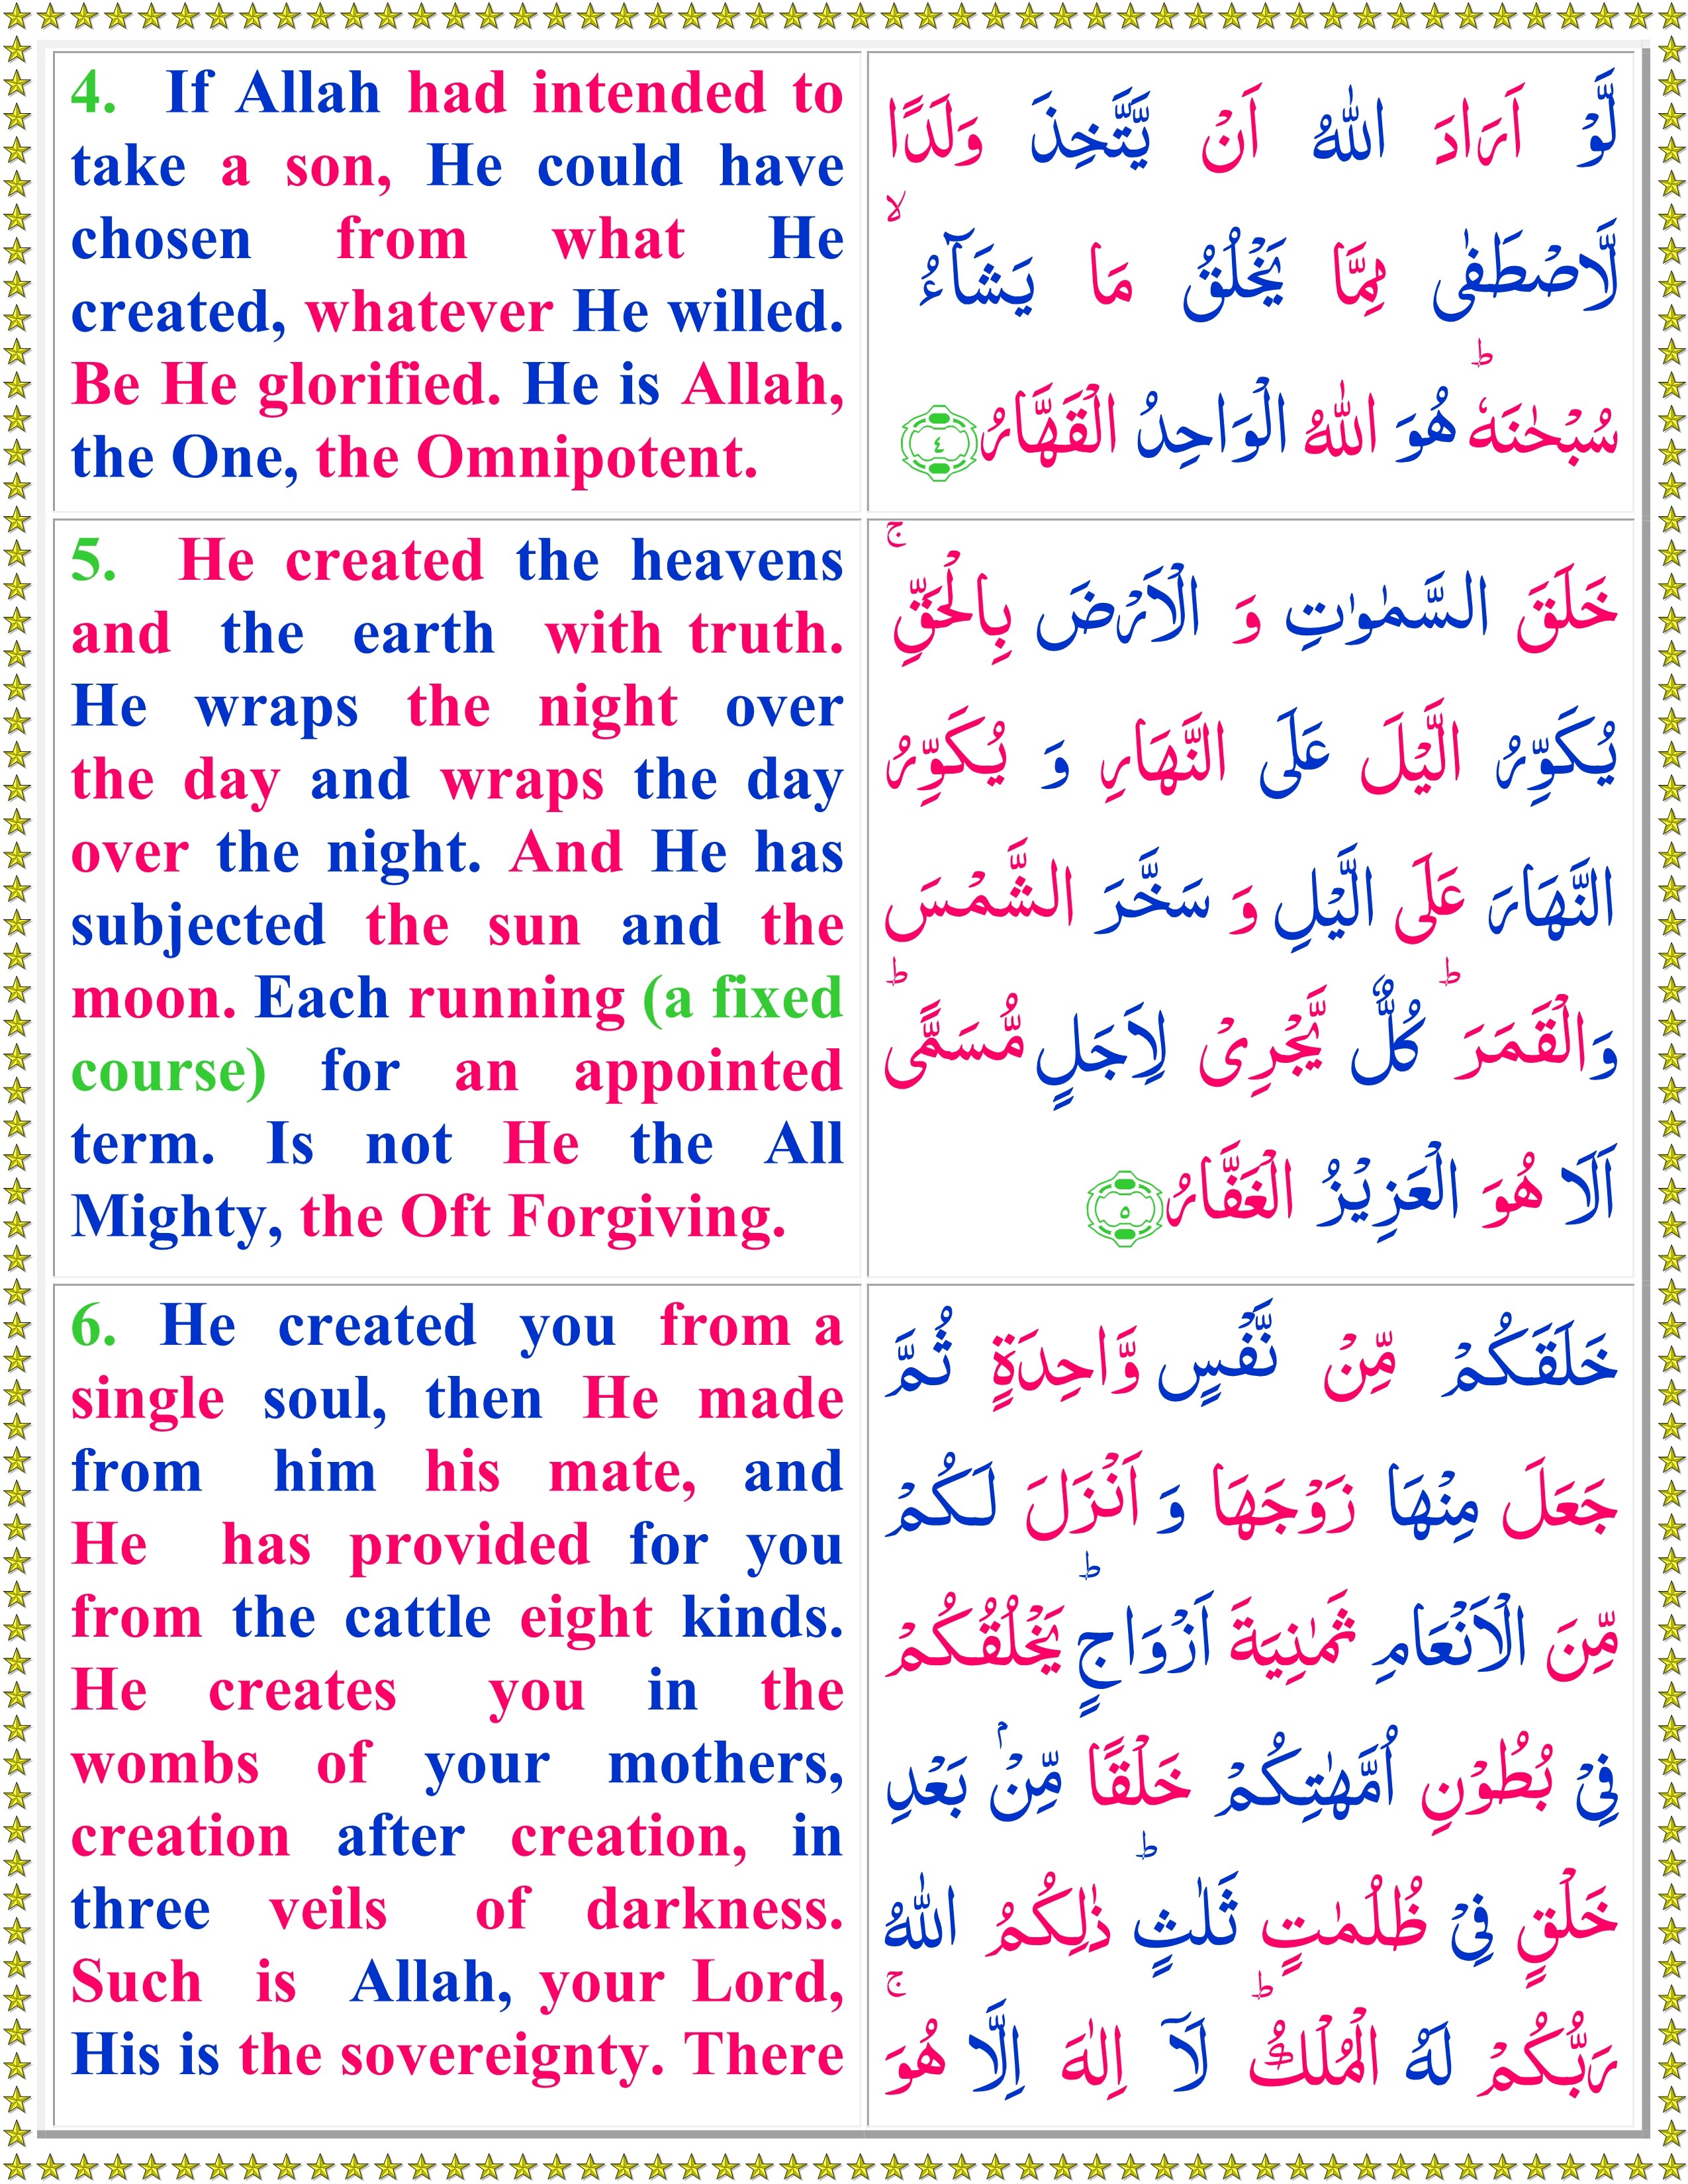 4. If Allah had intended to
take a son, He could have
chosen from what He
created, whatever He willed.
Be He glorified. He is Allah,
the One, the Omnipotent.
لَّوْ اَرَادَ اللّٰهُ اَنْ يَّتَّخِذَ وَلَدًا
لَّاصْطَفٰى مِمَّا يَخْلُقُ مَا يَشَآءُ ۙ
سُبْحٰنَهٗ ؕ هُوَ اللّٰهُ الْوَاحِدُ الْقَهَّارُ ﴿۴﴾
5. He created the heavens
and the earth with truth.
He wraps the night over
the day and wraps the day
over the night. And He has
subjected the sun and the
moon. Each running (a fixed
course) for an appointed
term. Is not He the All
Mighty, the Oft Forgiving.
خَلَقَ السَّمٰوٰتِ وَ الْاَرْضَ بِالْحَقِّ ۚ
يُكَوِّرُ الَّيْلَ عَلَى النَّهَارِ وَ يُكَوِّرُ
النَّهَارَ عَلَى الَّيْلِ وَ سَخَّرَ الشَّمْسَ
وَالْقَمَرَ ؕ كُلٌّ يَّجْرِىْ لِاَجَلٍ مُّسَمًّى ؕ
اَلَا هُوَ الْعَزِيْزُ الْغَفَّارُ ﴿۵﴾
6. He created you from a
single soul, then He made
from him his mate, and
He has provided for you
from the cattle eight kinds.
He creates you in the
wombs of your mothers,
creation after creation, in
three veils of darkness.
Such is Allah, your Lord,
His is the sovereignty. There
خَلَقَكُمْ مِّنْ نَّفْسٍ وَّاحِدَةٍ ثُمَّ
جَعَلَ مِنْهَا زَوْجَهَا وَ اَنْزَلَ لَكُمْ
مِّنَ الْاَنْعَامِ ثَمٰنِيَةَ اَزْوَاجٍ ؕ يَخْلُقُكُمْ
فِىْ بُطُوْنِ اُمَّهٰتِكُمْ خَلْقًا مِّنْۢ بَعْدِ
خَلْقٍ فِىْ ظُلُمٰتٍ ثَلٰثٍ ؕ ذٰلِكُمُ اللّٰهُ
رَبُّكُمْ لَهُ الْمُلْكُ ؕ لَآ اِلٰهَ اِلَّا هُوَ ۚ